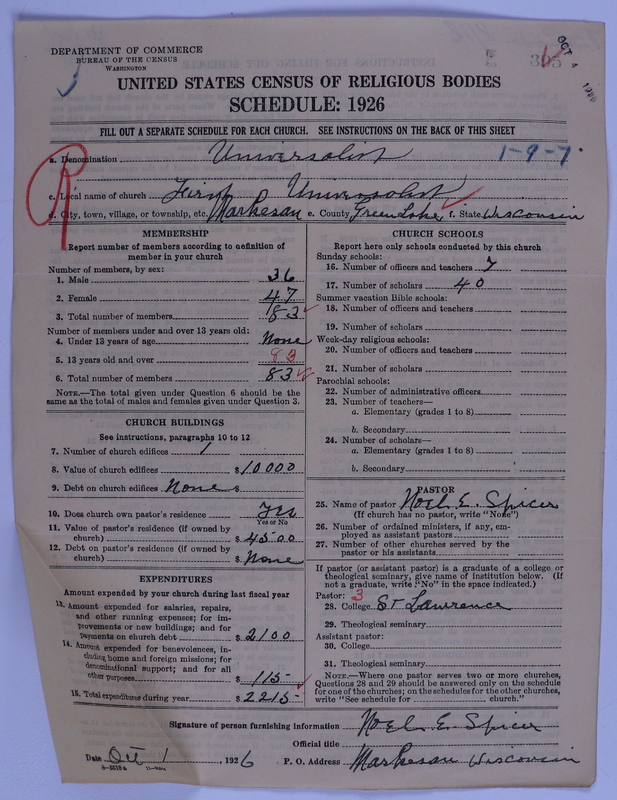 DEPARTMENT OF COMMERCE
BUREAU OF THE CENSUS
WASHINGTON
OCT 4 1926
UNITED STATES CENSUS OF RELIGIOUS BODIES
SCHEDULE: 1926
FILL OUT A SEPARATE SCHEDULE FOR EACH CHURCH. SEE INSTRUCTIONS ON THE BACK OF THIS SHEET
a. Denomination Universalist 1-9-7
R
c. Local name of church First Universalist
d. City, town, village, or township, etc. Markesan e. County Green Lake f. State Wisconsin
MEMBERSHIP
Report number of members according to definition of
member in your church
Number of members, by sex:
1. Male 36
2. Female 47
3. Total number of members 83
Number of members under and over 13 years old:
4. Under 13 years of age None
5. 13 years old and over 83
6. Total number of members 83
NOTE.—The total given under Question 6 should be
same as the total of males and females given under Question 3.
CHURCH BUILDINGS
See instructions, paragraphs 10 to 12
7. Number of church edifices 1
8. Value of church edifices $10000
9. Debt on church edifices None $
10. Does church own pastor's residence Yes
Yes or No
11. Value of pastor's residence (if owned by
church) $4500
12. Debt on pastor's residence (if owned by
church) $None
EXPENDITURES
Amount expended by your church during last fiscal year
13. Amount expended for salaries, repairs,
and other running expenses; for im-
provements or new buildings; and for
payments on church debt $2100
14. Amount expended for benevolences, in-
cluding home and foreign missions; for
denominational support; and for all
other purposes $115
15. Total expenditures during year $2215
CHURCH SCHOOLS
Report here only schools conducted by this church
Sunday schools:
16. Number of officers and teachers 7
17. Number of scholars 40
Summer vacation Bible schools:
18. Number of officers and teachers
19. Number of scholars
Week-day religious schools:
20. Number of officers and teachers
21. Number of scholars
Parochial schools:
22. Number of administrative officers
23. Number of teachers—
a. Elementary (grades 1 to 8)
b. Secondary
24. Number of scholars—
a. Elementary (grades 1 to 8)
b. Secondary
PASTOR
25. Name of pastor Noel E. Spicer
(If church has no pastor, write "None")
26. Number of ordained ministers, if any, em-
ployed as assistant pastors
27. Number of other churches served by the
pastor or his assistants
If pastor (or assistant pastor) is a graduate of a college or
theological seminary, give name of institution below. (If
not a graduate, write "No" in the space indicated.)
Pastor: 3
28. College St Lawrence
29. Theological seminary
Assistant pastor:
30. College
31. Theological seminary
NOTE.—Where one pastor serves two or more churches,
Questions 28 and 29 should be answered only on the schedule
for one of the churches; on the schedules for the other churches,
write "See schedule for church."
Signature of person furnishing information Noel E. Spicer
Official title
Date Oct 1, 1926 P. O. Address Markesan Wisconsin